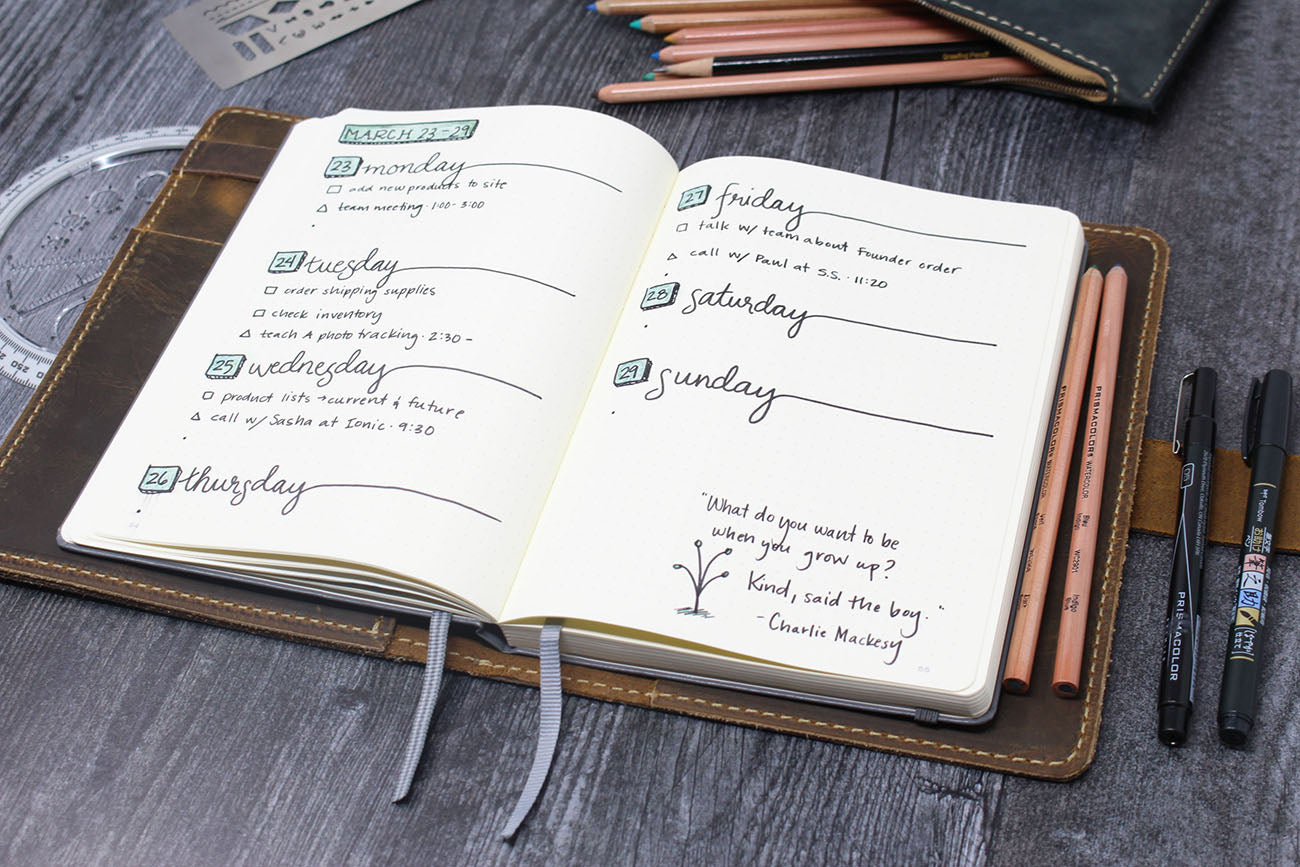 MARCH 23-29
23 monday
□ add new products to site
△ team meeting · 1:00 - 3:00
24 tuesday
□ order shipping supplies
□ check inventory
△ teach A photo tracking · 2:30 -
25 wednesday
□ product lists → current & future
△ call w/ Sasha at Ionic · 9:30
26 thursday
54
27 friday
□ talk w/ team about Founder order
△ call w/ Paul at S.S. · 11:20
28 saturday
29 sunday
"What do you want to be
when you grow up?
Kind, said the boy."
- Charlie Mackesy
55
PRISMACOLOR® WATERCOLOR
PRISMACOLOR® WATERCOLOR
Indigo WC2901 Indigo
PRISMACOLOR
Tombow